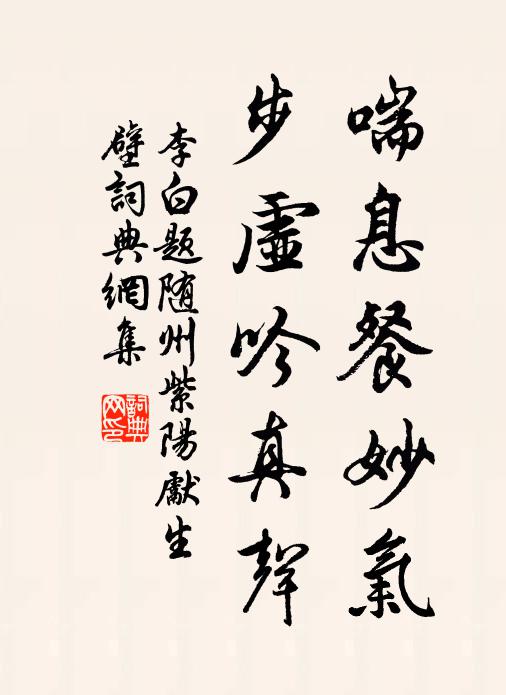 喘息餐妙氣
步虛吟真聲
李白题随州紫陽獻生
壁詞典網集
詞典网印